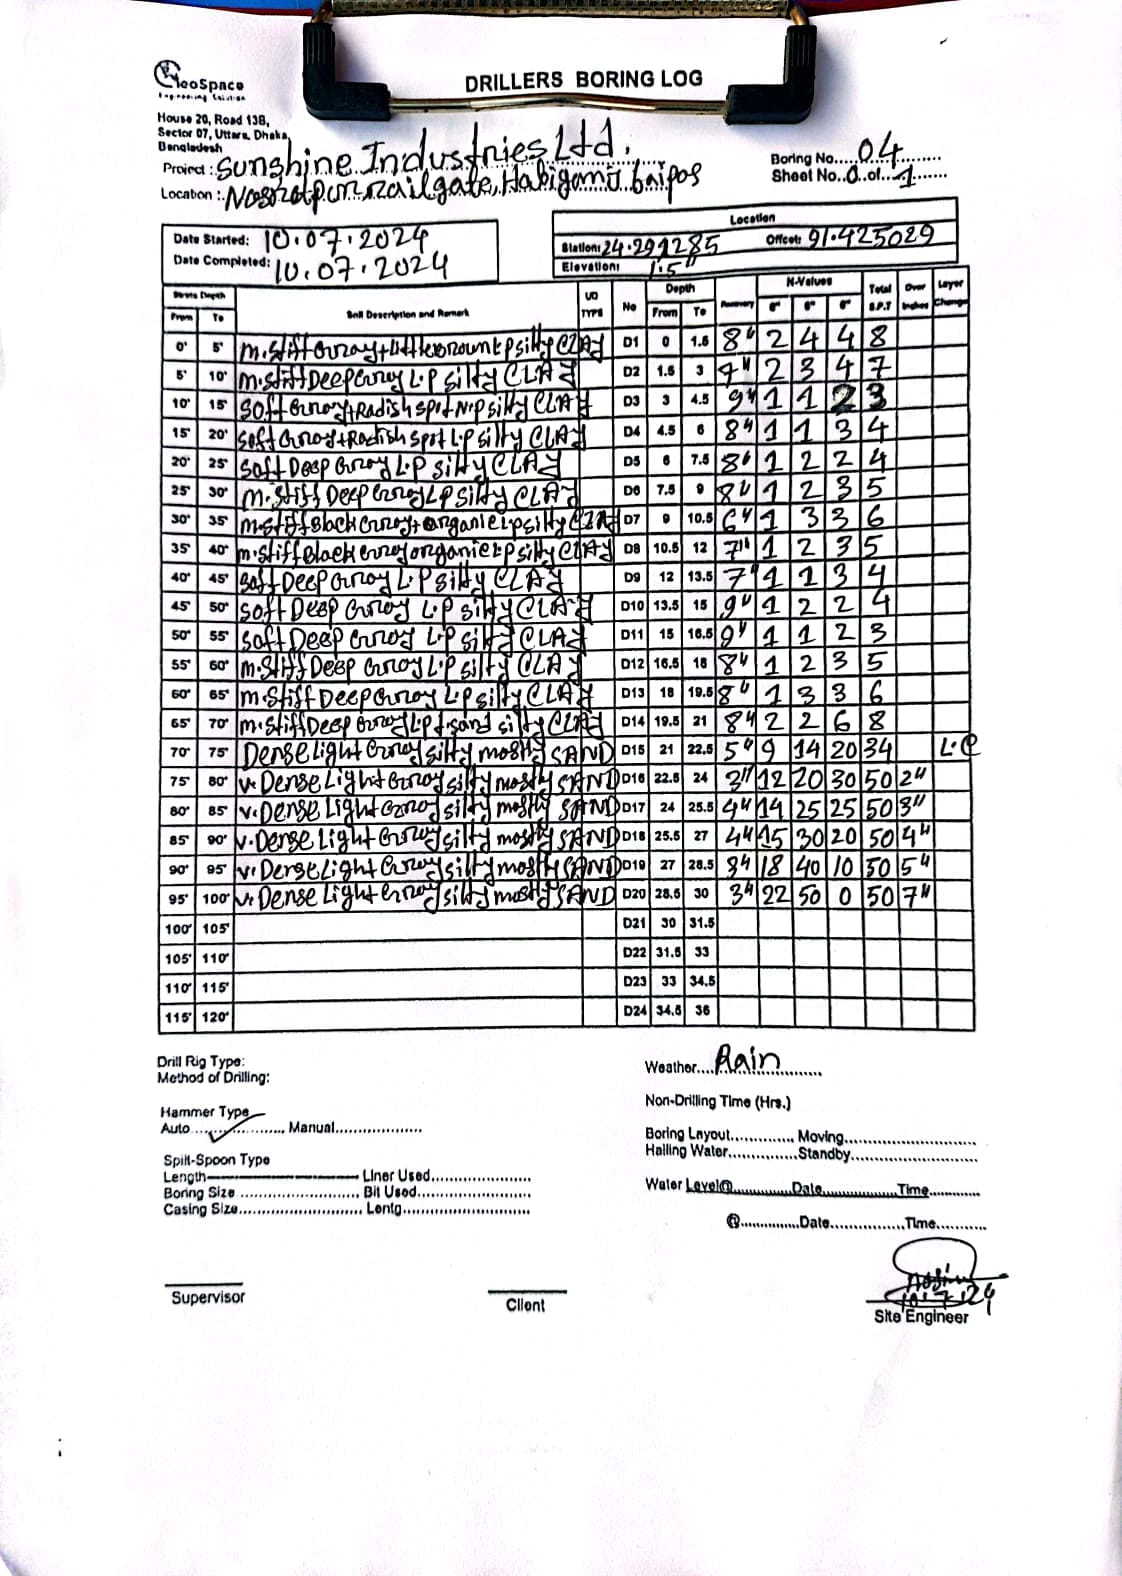 GeoSpace
Engineering Solution
DRILLERS BORING LOG
House 20, Road 13B,
Sector 07, Uttara, Dhaka,
Bangladesh
Project : Sunshine Industries Ltd.
Boring No....04
Sheet No..0.of..1
Location :
Date Started: 10.07.2024
Date Completed: 10.07.2024
Location
Station: 24.291285 Offcet: 91.425029
Elevation: 1.5"
Strata Depth Soil Description and Remark UD TYPE No Depth Recovery N-Values Total S.P.T Over Inches Layer Change
From To From To 6" 6" 6"
0' 5' M.Stiff Gray+Little Brown L.P silty CLAY D1 0 1.5 8" 2 4 4 8
5' 10' M.Stiff Deep Gray L.P silty CLAY D2 1.5 3 9" 2 3 4 7
10' 15' Soft Gray+Radish Spot N.P silty CLAY D3 3 4.5 9" 1 1 2 3
15' 20' Soft Gray+Radish Spot L.P silty CLAY D4 4.5 6 8" 1 1 3 4
20' 25' Soft Deep Gray L.P silty CLAY D5 6 7.5 8" 1 2 2 4
25' 30' M.Stiff Deep Gray L.P silty CLAY D6 7.5 9 8" 1 2 3 5
30' 35' M.Stiff Black Gray+organic L.P silty CLAY D7 9 10.5 6" 1 3 3 6
35' 40' M.Stiff Black Gray organic L.P silty CLAY D8 10.5 12 7" 1 2 3 5
40' 45' Soft Deep Gray L.P silty CLAY D9 12 13.5 7" 1 1 3 4
45' 50' Soft Deep Gray L.P silty CLAY D10 13.5 15 9" 1 2 2 4
50' 55' Soft Deep Gray L.P silty CLAY D11 15 16.5 9" 1 1 2 3
55' 60' M.Stiff Deep Gray L.P silty CLAY D12 16.5 18 8" 1 2 3 5
60' 65' M.Stiff Deep Gray L.P silty CLAY D13 18 19.5 8" 1 3 3 6
65' 70' M.Stiff Deep Gray L.P f.sand silty CLAY D14 19.5 21 8" 2 2 6 8
70' 75' Dense Light Gray silty mostly SAND D15 21 22.5 5" 9 14 20 34 L.C
75' 80' V.Dense Light Gray silty mostly SAND D16 22.5 24 3" 12 20 30 50 2"
80' 85' V.Dense Light Gray silty mostly SAND D17 24 25.5 4" 14 25 25 50 3"
85' 90' V.Dense Light Gray silty mostly SAND D18 25.5 27 4" 15 30 20 50 4"
90' 95' V.Dense Light Gray silty mostly SAND D19 27 28.5 3" 18 40 10 50 5"
95' 100' V.Dense Light Gray silty mostly SAND D20 28.5 30 3" 22 50 0 50 7"
100' 105' D21 30 31.5
105' 110' D22 31.5 33
110' 115' D23 33 34.5
115' 120' D24 34.5 36
Drill Rig Type:
Method of Drilling:
Weather....Rain
Non-Drilling Time (Hrs.)
Hammer Type
Auto....✓............, Manual..................
Boring Layout............., Moving..........................
Halling Water..............Standby..........................
Split-Spoon Type
Length Liner Used.....................
Boring Size .........................., Bit Used........................
Casing Size........................... Lentg..............................
Water Level@..............Date.................Time............
@..............Date................Time...........
10.7.24
Supervisor
Client
Site Engineer